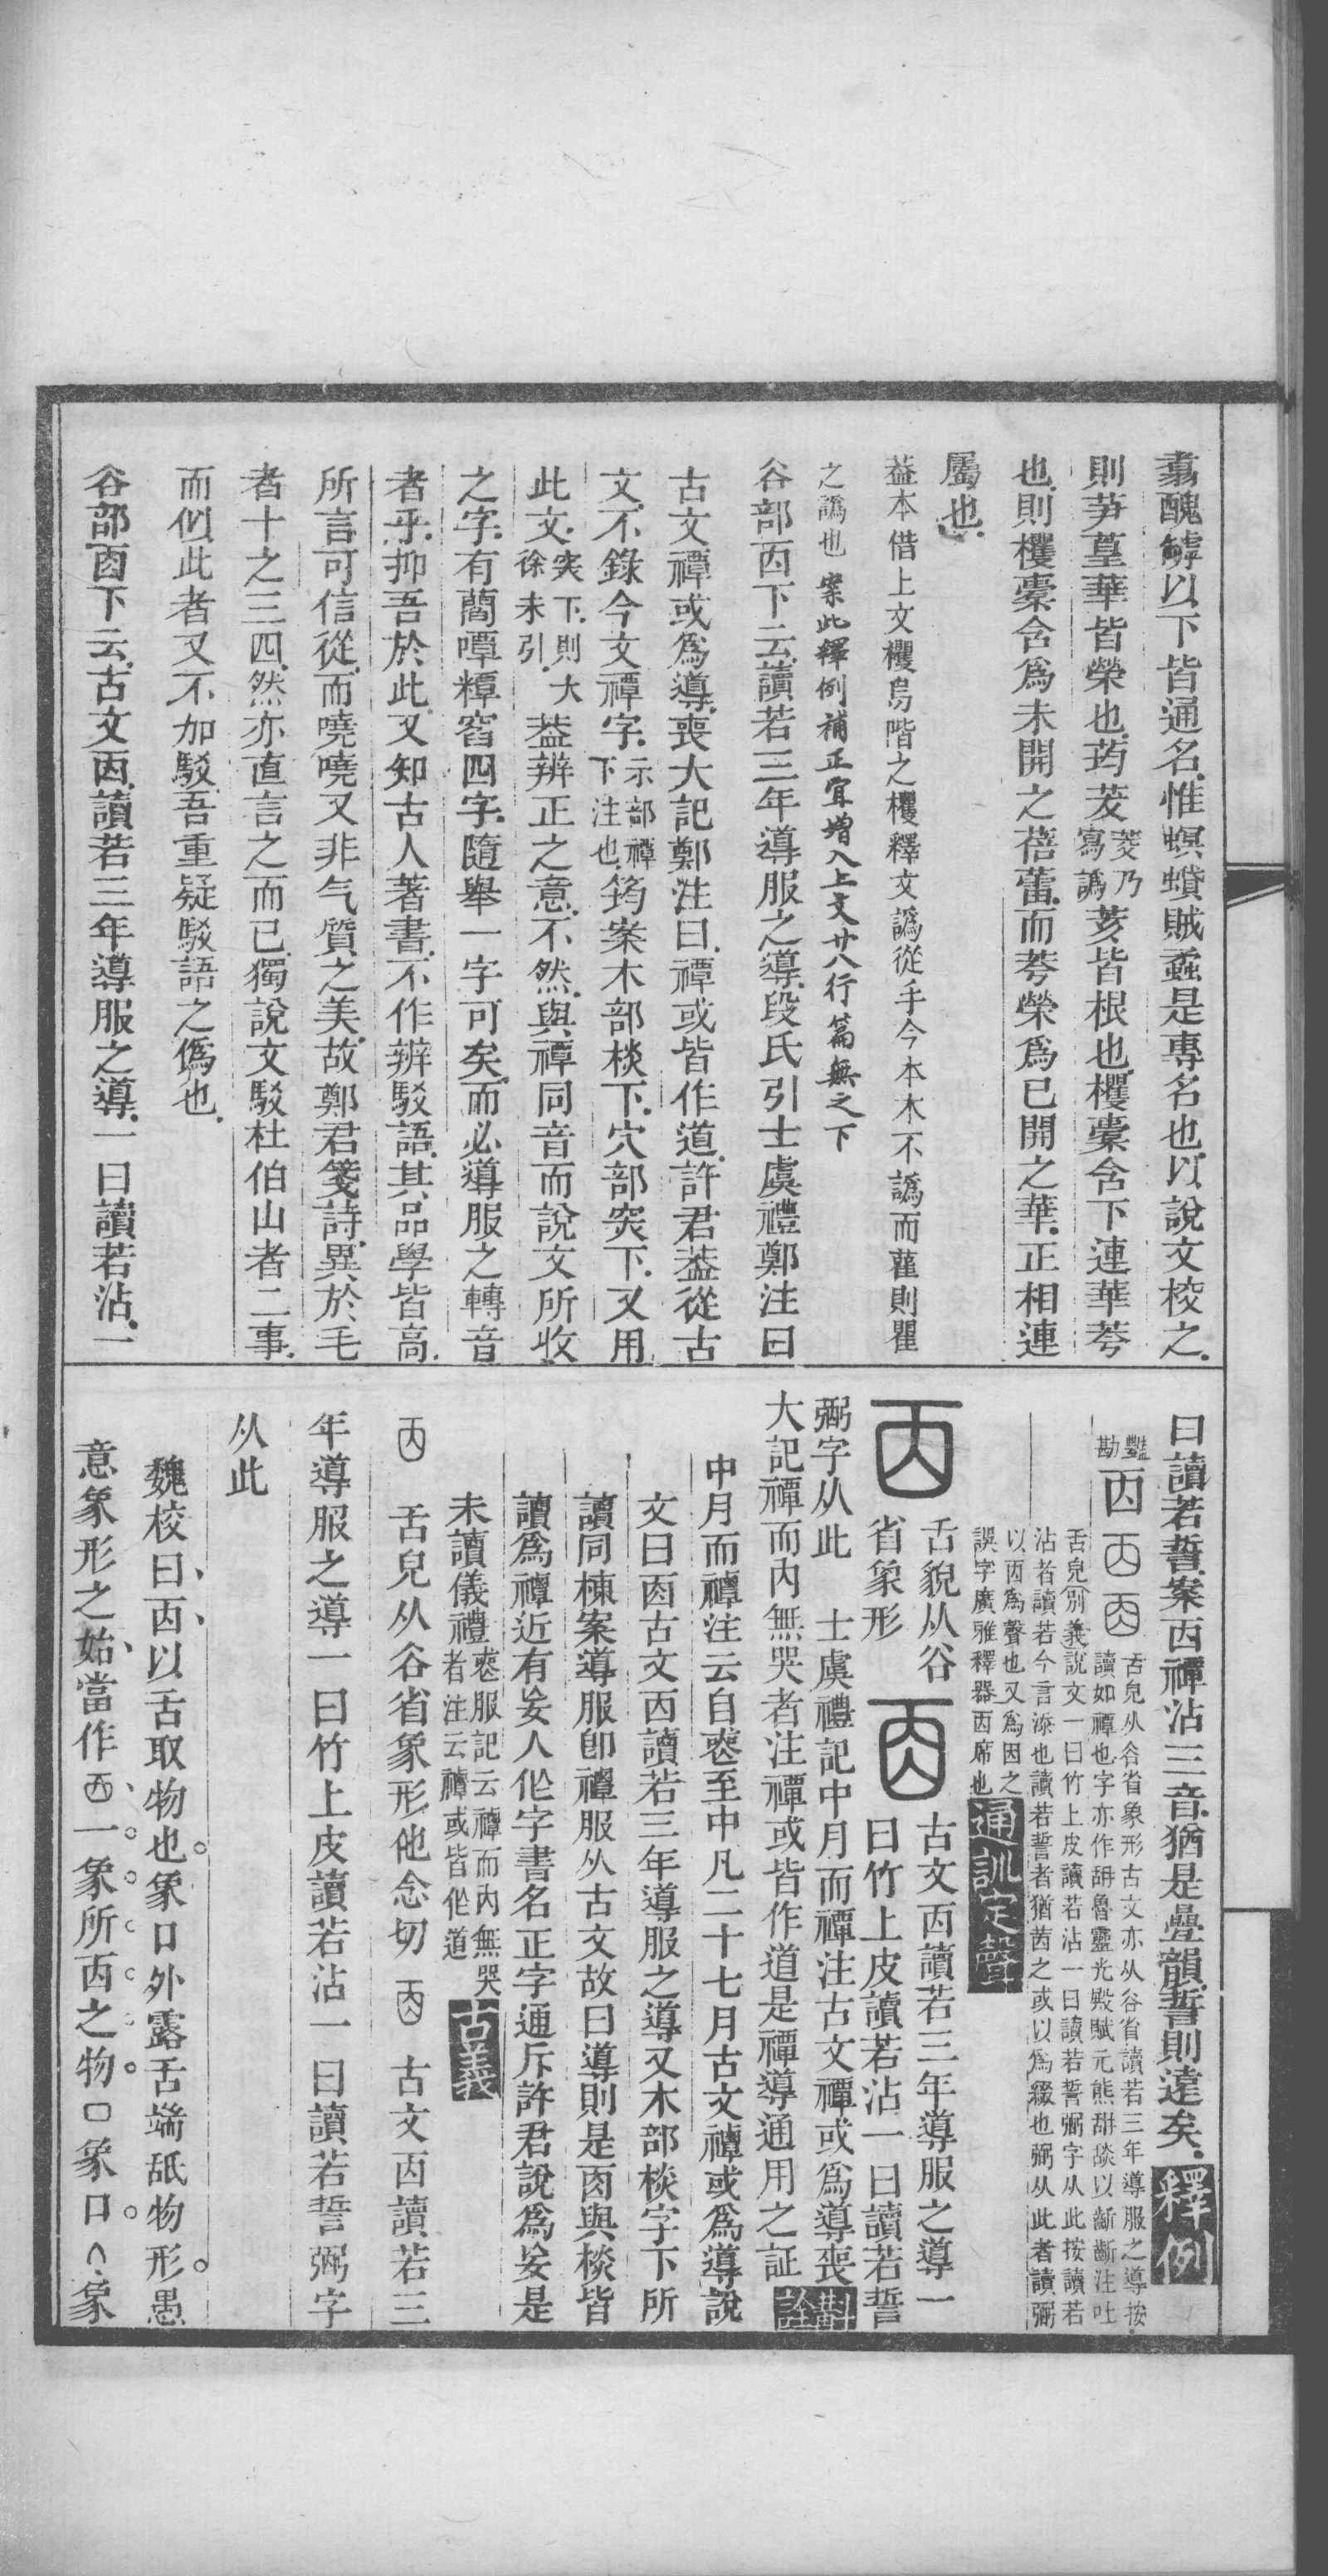 翥醜鏬以下皆通名惟螟蟘賊蟊是專名也以說文校之
則芛葟華皆榮也荺茇茭乃寫譌荄皆根也欔橐含下連華荂
也則欔橐含爲未開之蓓蕾而荂榮爲已開之華正相連
屬也
葢本借上文欔烏階之欔釋文譌從手今本木不譌而雚則瞿
之譌也案此釋例補正宜增入上文廿八行篇無之下
谷部㐁下云讀若三年導服之導段氏引士虞禮鄭注曰
古文禫或爲導喪大記鄭注曰禫或皆作道許君葢從古
文不錄今文禫字示部禫下注也筠案木部棪下穴部突下又用
此文突下則大徐未引葢辨正之意不然與禫同音而說文所收
之字有藺嘾糣窞四字隨舉一字可矣而必導服之轉音
者乎抑吾於此又知古人著書不作辨駁語其品學皆高
所言可信從而嘵嘵又非气質之美故鄭君箋詩異於毛
者十之三四然亦直言之而已獨說文駁杜伯山者二事
而似此者又不加駁吾重疑駁語之僞也
谷部㐁下云古文㐁讀若三年導服之導一曰讀若沾一
曰讀若誓案㐁禫沾三音猶是疊韻誓則遠矣釋例
㐁舌皃从谷省象形古文亦从谷省讀若三年導服之導按
讀如禫也字亦作䑙魯靈光殿賦元熊䑙舕以齗齗注吐
舌皃別義說文一曰竹上皮讀若沾一曰讀若誓弼字从此按讀若
沾者讀若今言添也讀若誓者猶茜之或以爲綴也弼从此者讀弼
以㐁爲聲也又爲因之
誤字廣雅釋器㐁席也通訓定聲
㐁舌貌从谷省象形古文㐁讀若三年導服之導一
曰竹上皮讀若沾一曰讀若誓
弼字从此士虞禮記中月而禫注古文禫或爲導喪
大記禫而內無哭者注禫或皆作道是禫導通用之証斠詮
中月而禫注云自喪至中凡二十七月古文禫或爲導說
文曰㐁古文㐁讀若三年導服之導又木部棪字下所
讀同棟案導服卽禫服从古文故曰導則是㐁與棪皆
讀爲禫近有妄人作字書名正字通斥許君說爲妄是
未讀儀禮喪服記云禫而內無哭者注云禫或皆作道古義
㐁舌皃从谷省象形他念切㐁古文㐁讀若三
年導服之導一曰竹上皮讀若沾一曰讀若誓弼字
从此
魏校曰㐁以舌取物也象口外露舌端舐物形愚
意象形之始當作㐁一象所㐁之物口象口𠆢象